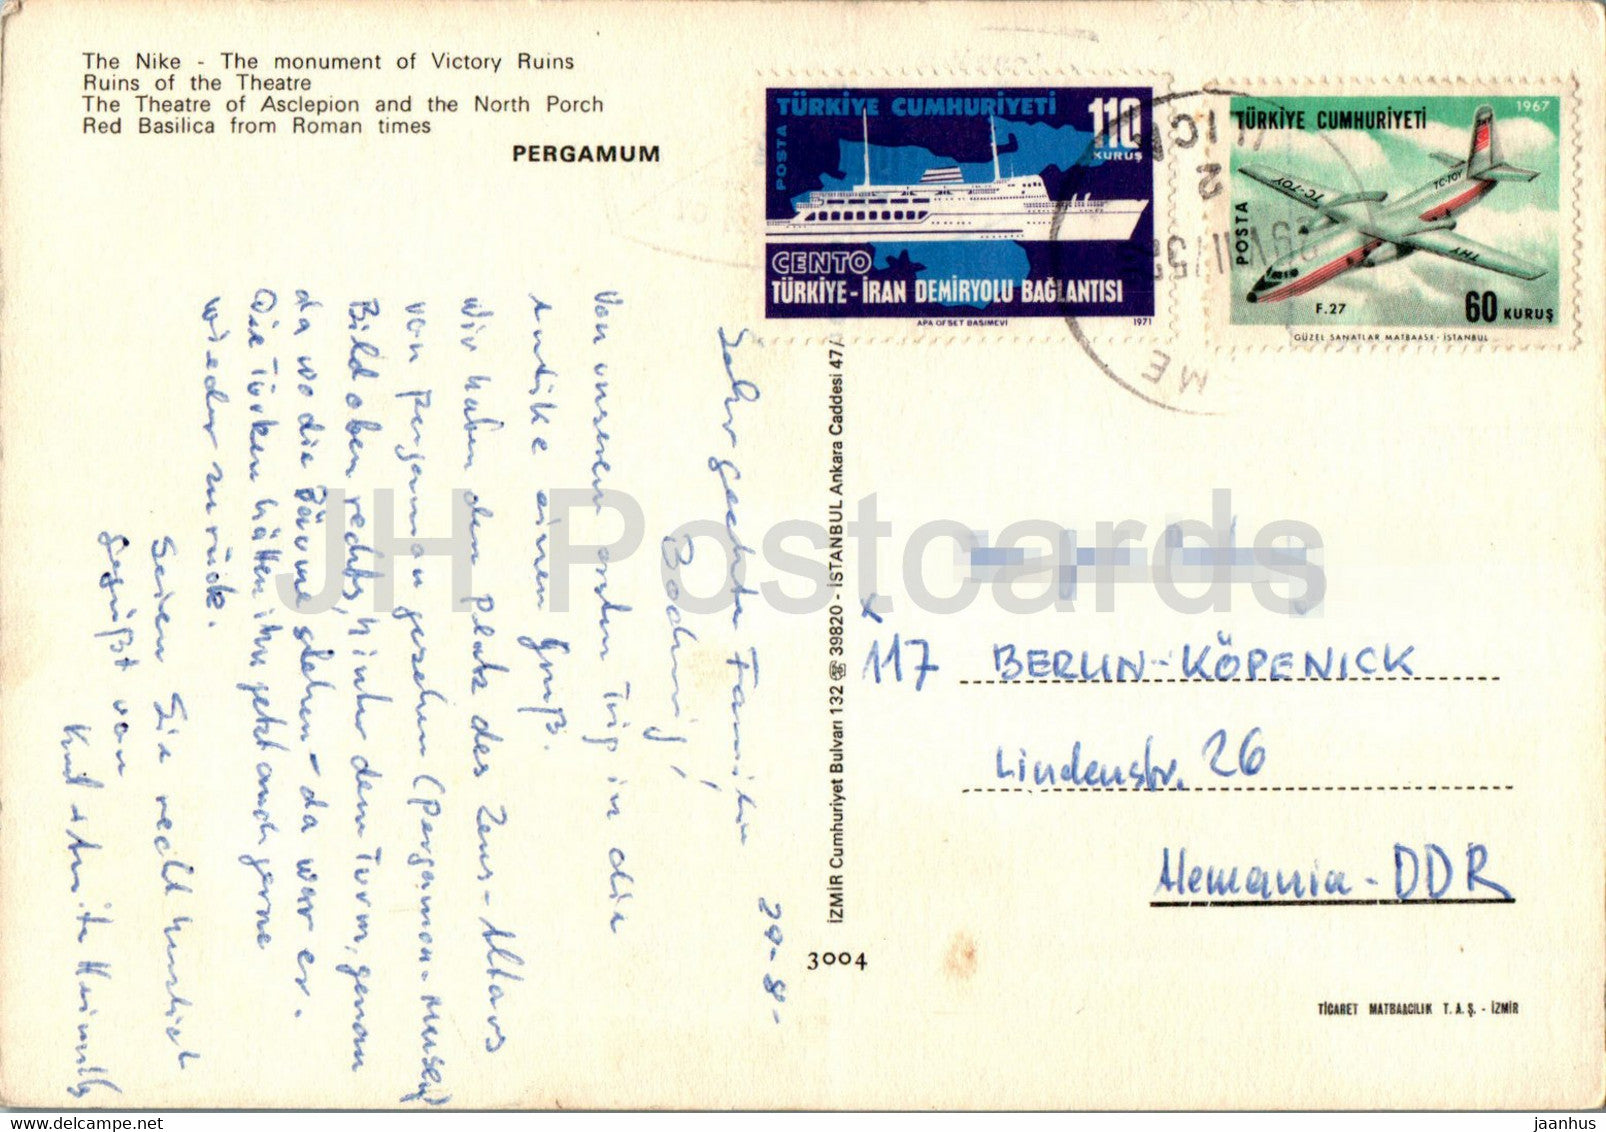 The Nike - The monument of Victory Ruins
Ruins of the Theatre
The Theatre of Asclepion and the North Porch
Red Basilica from Roman times
PERGAMUM
TÜRKİYE CUMHURİYETİ
110
KURUŞ
POSTA
CENTO
TÜRKİYE - İRAN DEMİRYOLU BAĞLANTISI
APA OFSET BASIMEVİ
1971
1967
TÜRKİYE CUMHURİYETİ
POSTA
TC-TOY
TC-TOY
THY
F.27
60 KURUŞ
GÜZEL SANATLAR MATBAASI - İSTANBUL
29-8-
Sehr geehrte Familie
Von unserem ersten Trip in die
Antike einen Gruß.
Wir haben den Platz des Zeus-Altars
von Pergamon gesehen (Pergamon-Museum)
Bild oben rechts, hinter dem Turm, genau
da wo die Bäume stehen - da war er.
Die Türken hätten ihn jetzt auch gerne
wieder zurück.
Seien Sie recht herzlich
gegrüßt von
İZMİR Cumhuriyet Bulvarı 132 ☎ 39820 - İSTANBUL Ankara Caddesi 47/
3004
117 BERLIN-KÖPENICK
Lindenstr. 26
Alemania-DDR
TİCARET MATBAACILIK T.A.Ş. - İZMİR
JH Postcards
www.delcampe.net
jaanhus